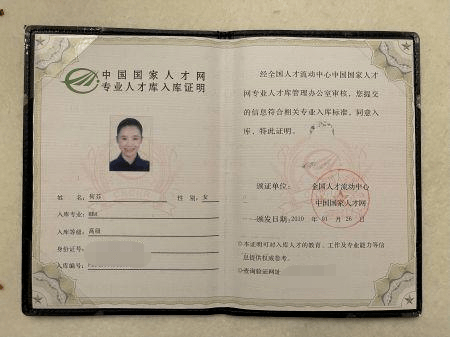 中国国家人才网
专业人才库入库证明
姓 名: 何芬 性 别: 女
入库专业: MBA
入库等级: 高级
身份证号:
入库编号:
经全国人才流动中心中国国家人才
网专业人才库管理办公室审核，您提交
的信息符合相关专业入库标准，同意入
库，特此证明。
颁证单位: 全国人才流动中心
中国国家人才网
颁发日期: 2010 年 01 月 26 日
本证明可对入库人才的教育、工作及专业能力等信
息提供权威参考。
查询验证网址